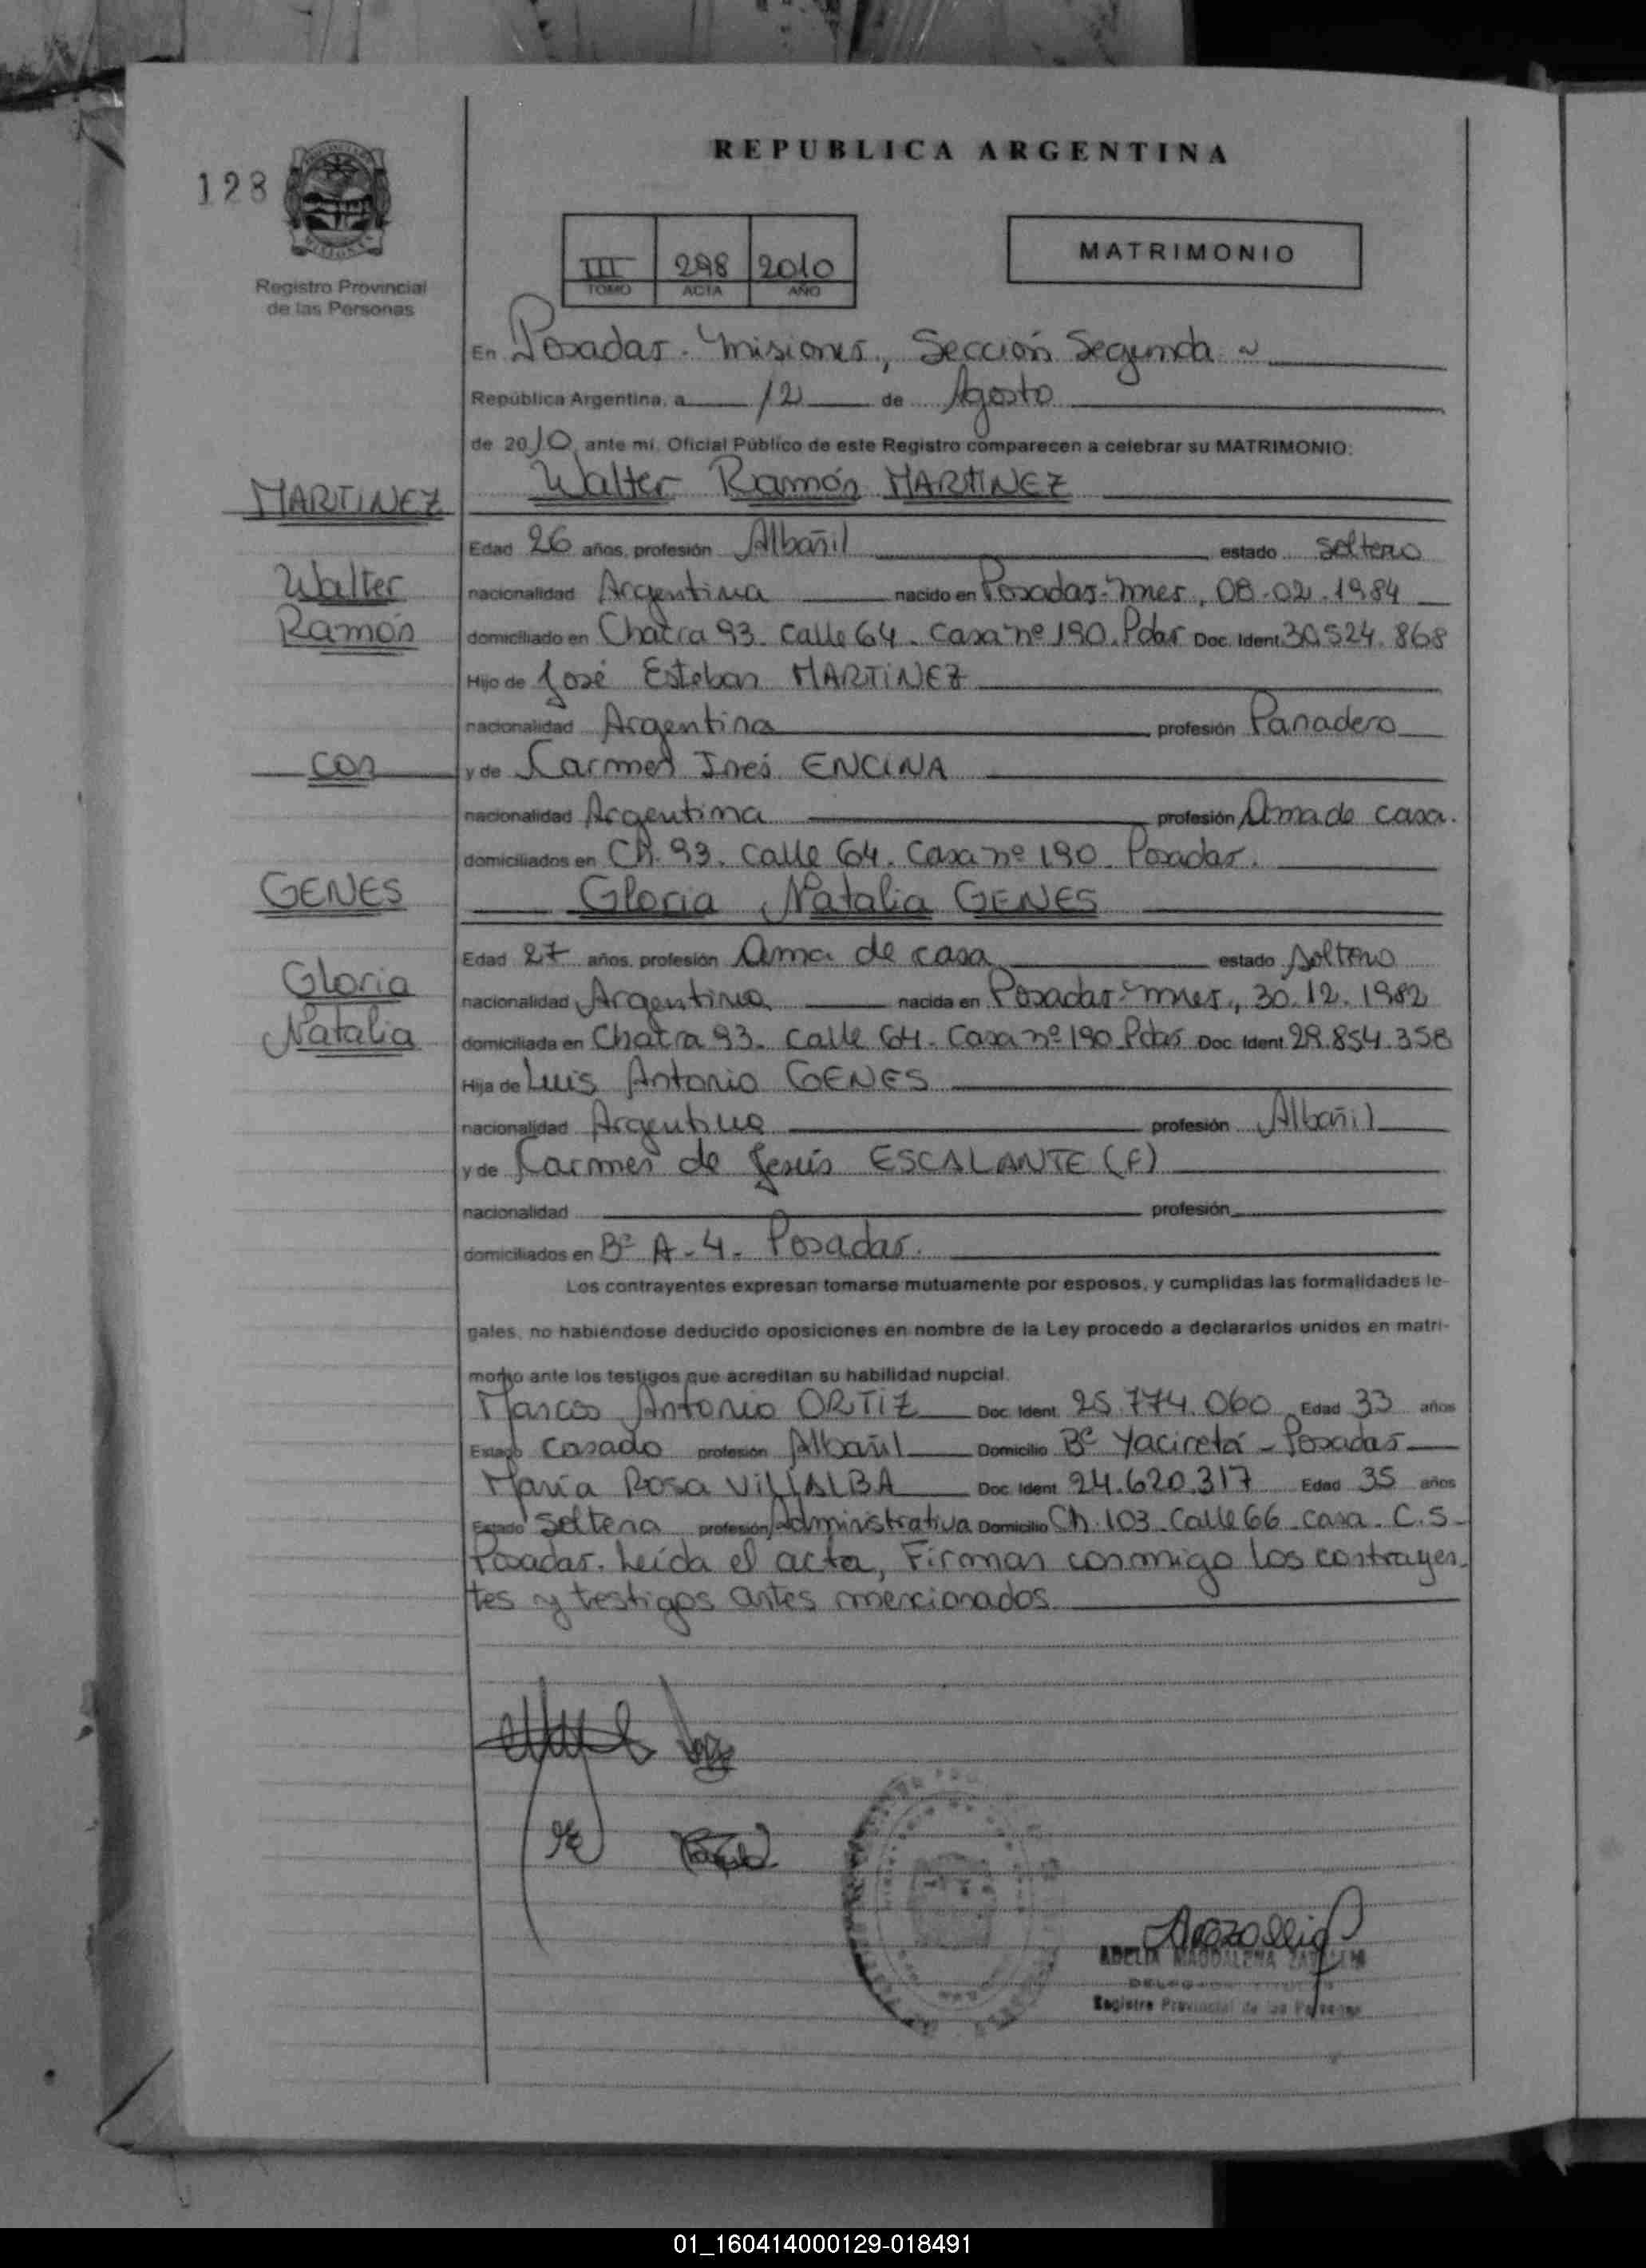 128
Registro Provincial
de las Personas
REPUBLICA ARGENTINA
III 298 2010
TOMO ACTA AÑO
MATRIMONIO
En Posadas - Misiones, Sección Segunda
República Argentina, a 12 de Agosto
de 2010, ante mi, Oficial Público de este Registro comparecen a celebrar su MATRIMONIO:
Walter Ramón MARTINEZ
MARTINEZ
Edad 26 años, profesión Albañil estado soltero
Walter
nacionalidad Argentina nacido en Posadas-Mnes, 08-02-1984
Ramón
domiciliado en Chacra 93. Calle 64. Casa nº 190. Pdas Doc. Ident. 30.524.868
Hijo de José Esteban MARTINEZ
nacionalidad Argentina profesión Panadero
con
y de Carmen Inés ENCINA
nacionalidad Argentina profesión Ama de casa.
domiciliados en Ch. 93. Calle 64. Casa nº 190. Posadas.
GENES
Gloria Natalia GENES
Edad 27 años, profesión Ama de casa estado soltero
Gloria
nacionalidad Argentina nacida en Posadas-Mnes., 30.12.1982
Natalia
domiciliada en Chacra 93. Calle 64. Casa nº 190 Pdas Doc. Ident. 29.854.358
Hija de Luis Antonio GENES
nacionalidad Argentina profesión Albañil
y de Carmen de Jesús ESCALANTE (F)
nacionalidad profesión
domiciliados en Bº A-4- Posadas.
Los contrayentes expresan tomarse mutuamente por esposos, y cumplidas las formalidades le-
gales, no habiéndose deducido oposiciones en nombre de la Ley procedo a declararlos unidos en matri-
monio ante los testigos que acreditan su habilidad nupcial.
Marcos Antonio ORTIZ Doc. Ident. 25.774.060 Edad 33 años
Estado Casado profesión Albañil Domicilio Bº Yacireta - Posadas
María Rosa VILLALBA Doc. Ident. 24.620.317 Edad 35 años
Estado Soltera profesión Administrativa Domicilio Ch. 103 Calle 66 casa C.S-
Posadas. Leída el acta, Firman conmigo los contrayen-
tes y testigos antes mencionados
ADELIA MAGDALENA
Registro Provincial de las Personas
01_160414000129-018491